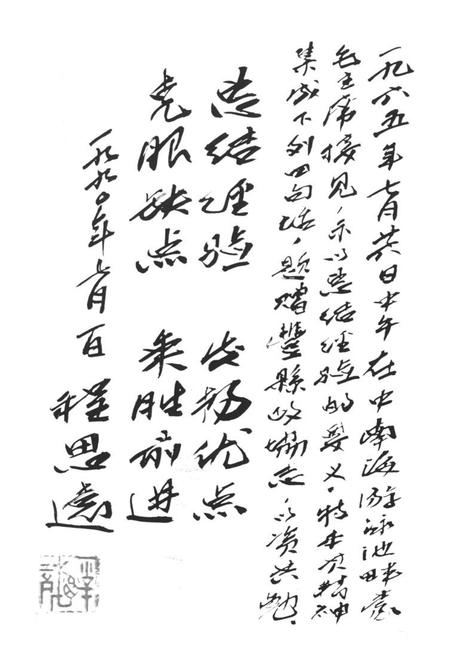 一九六五年七月廿六日中午在中南海游泳池畔蒙
毛主席接见，示以总结经验的要义。特本其精神
集成下列四句话，题赠丰县政协志，以资共勉。
总结经验 发扬优点
克服缺点 乘胜前进
一九九〇年七月一日
程思远